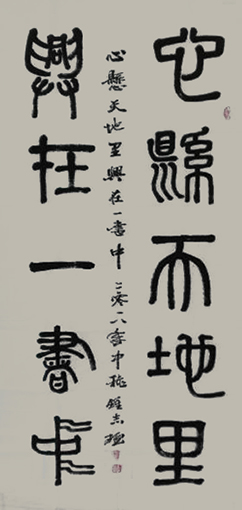 心縣天地里
興在一書中
心懸天地里興在一書中 二零一八年仲秋鍾志